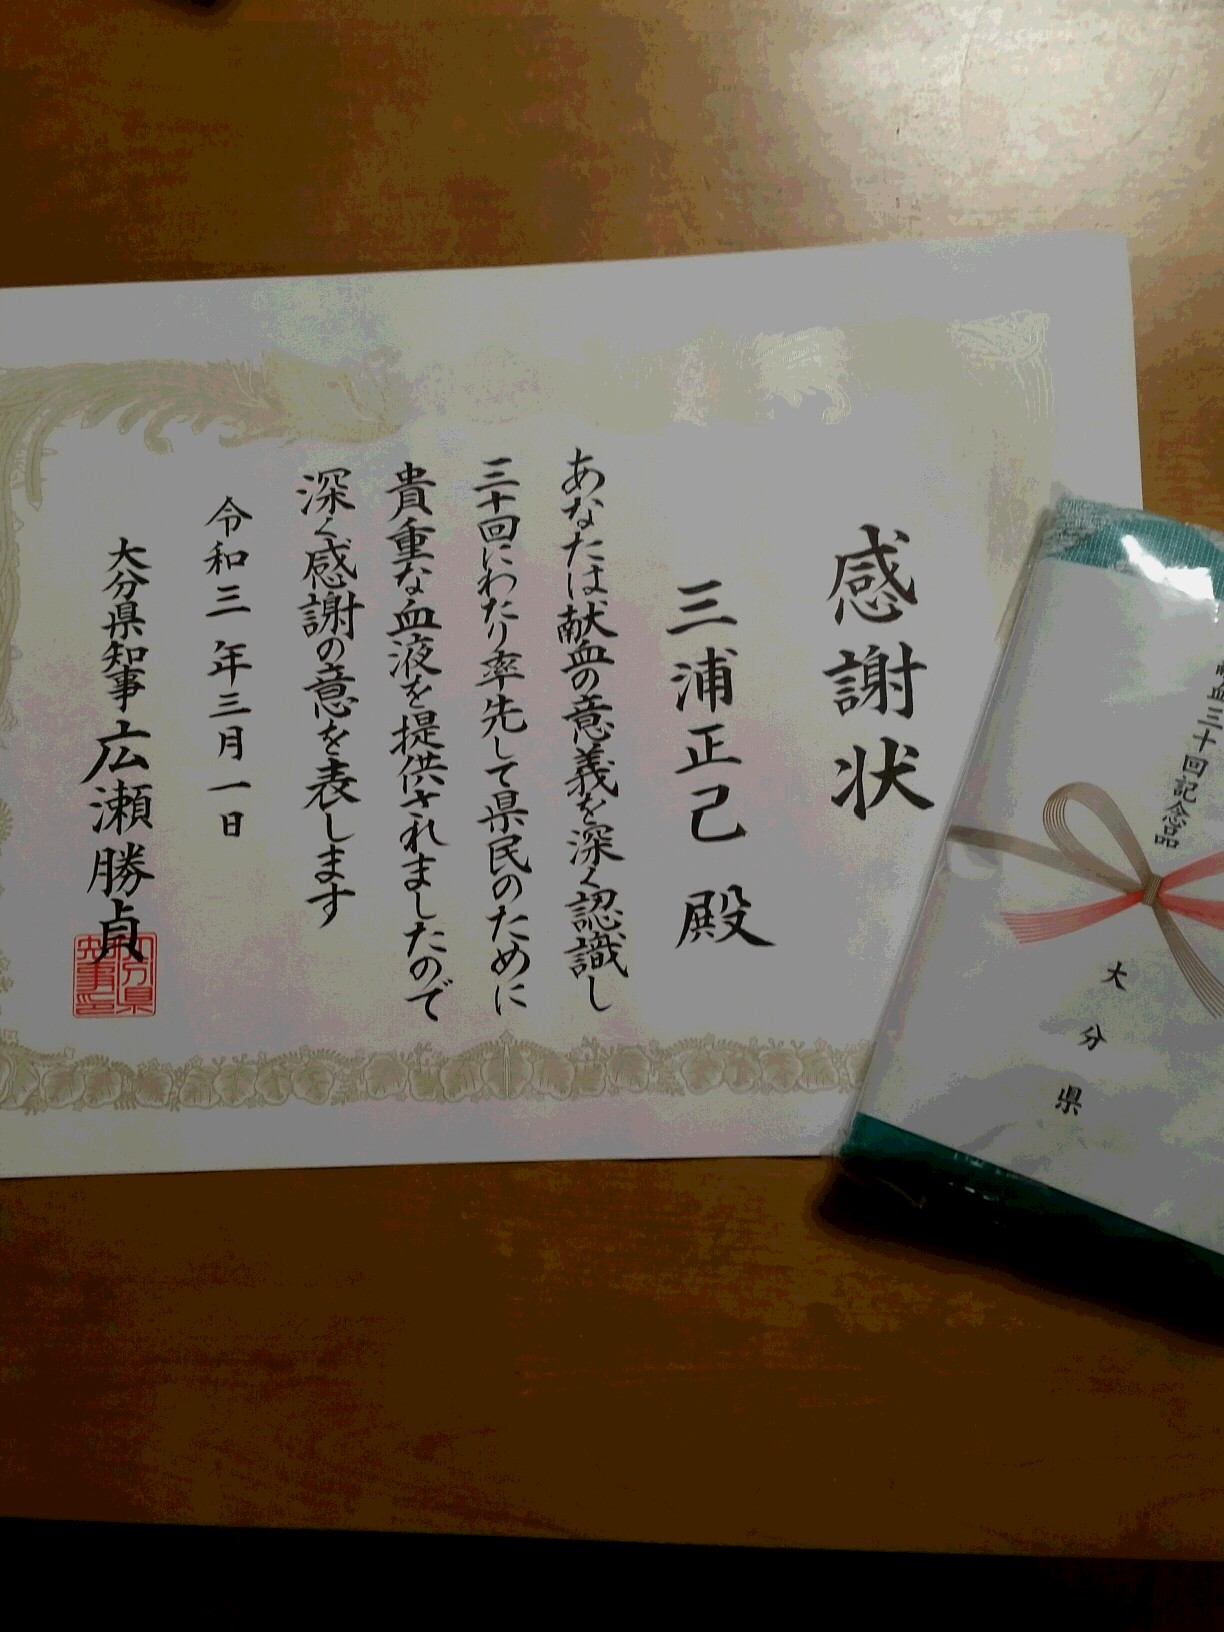 感謝状
三浦正己 殿
あなたは献血の意義を深く認識し
三十回にわたり率先して県民のために
貴重な血液を提供されましたので
深く感謝の意を表します
令和三年三月一日
大分県知事 広瀬勝貞
大分県知事印
献血三十回記念品
大分県